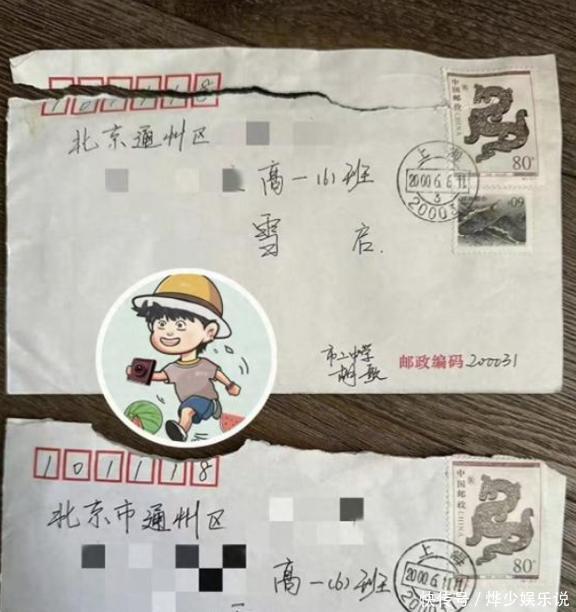 101118
北京通州区
高一(6)班
雪 启.
市二中学
胡歌
邮政编码 200031
中国邮政
CHINA
80分
上海
2000.6.11
3
20003
60分
101118
北京市通州区
高一(6)班
中国邮政
CHINA
80分
上海
2000.6.11
快传号／烨少娱乐说